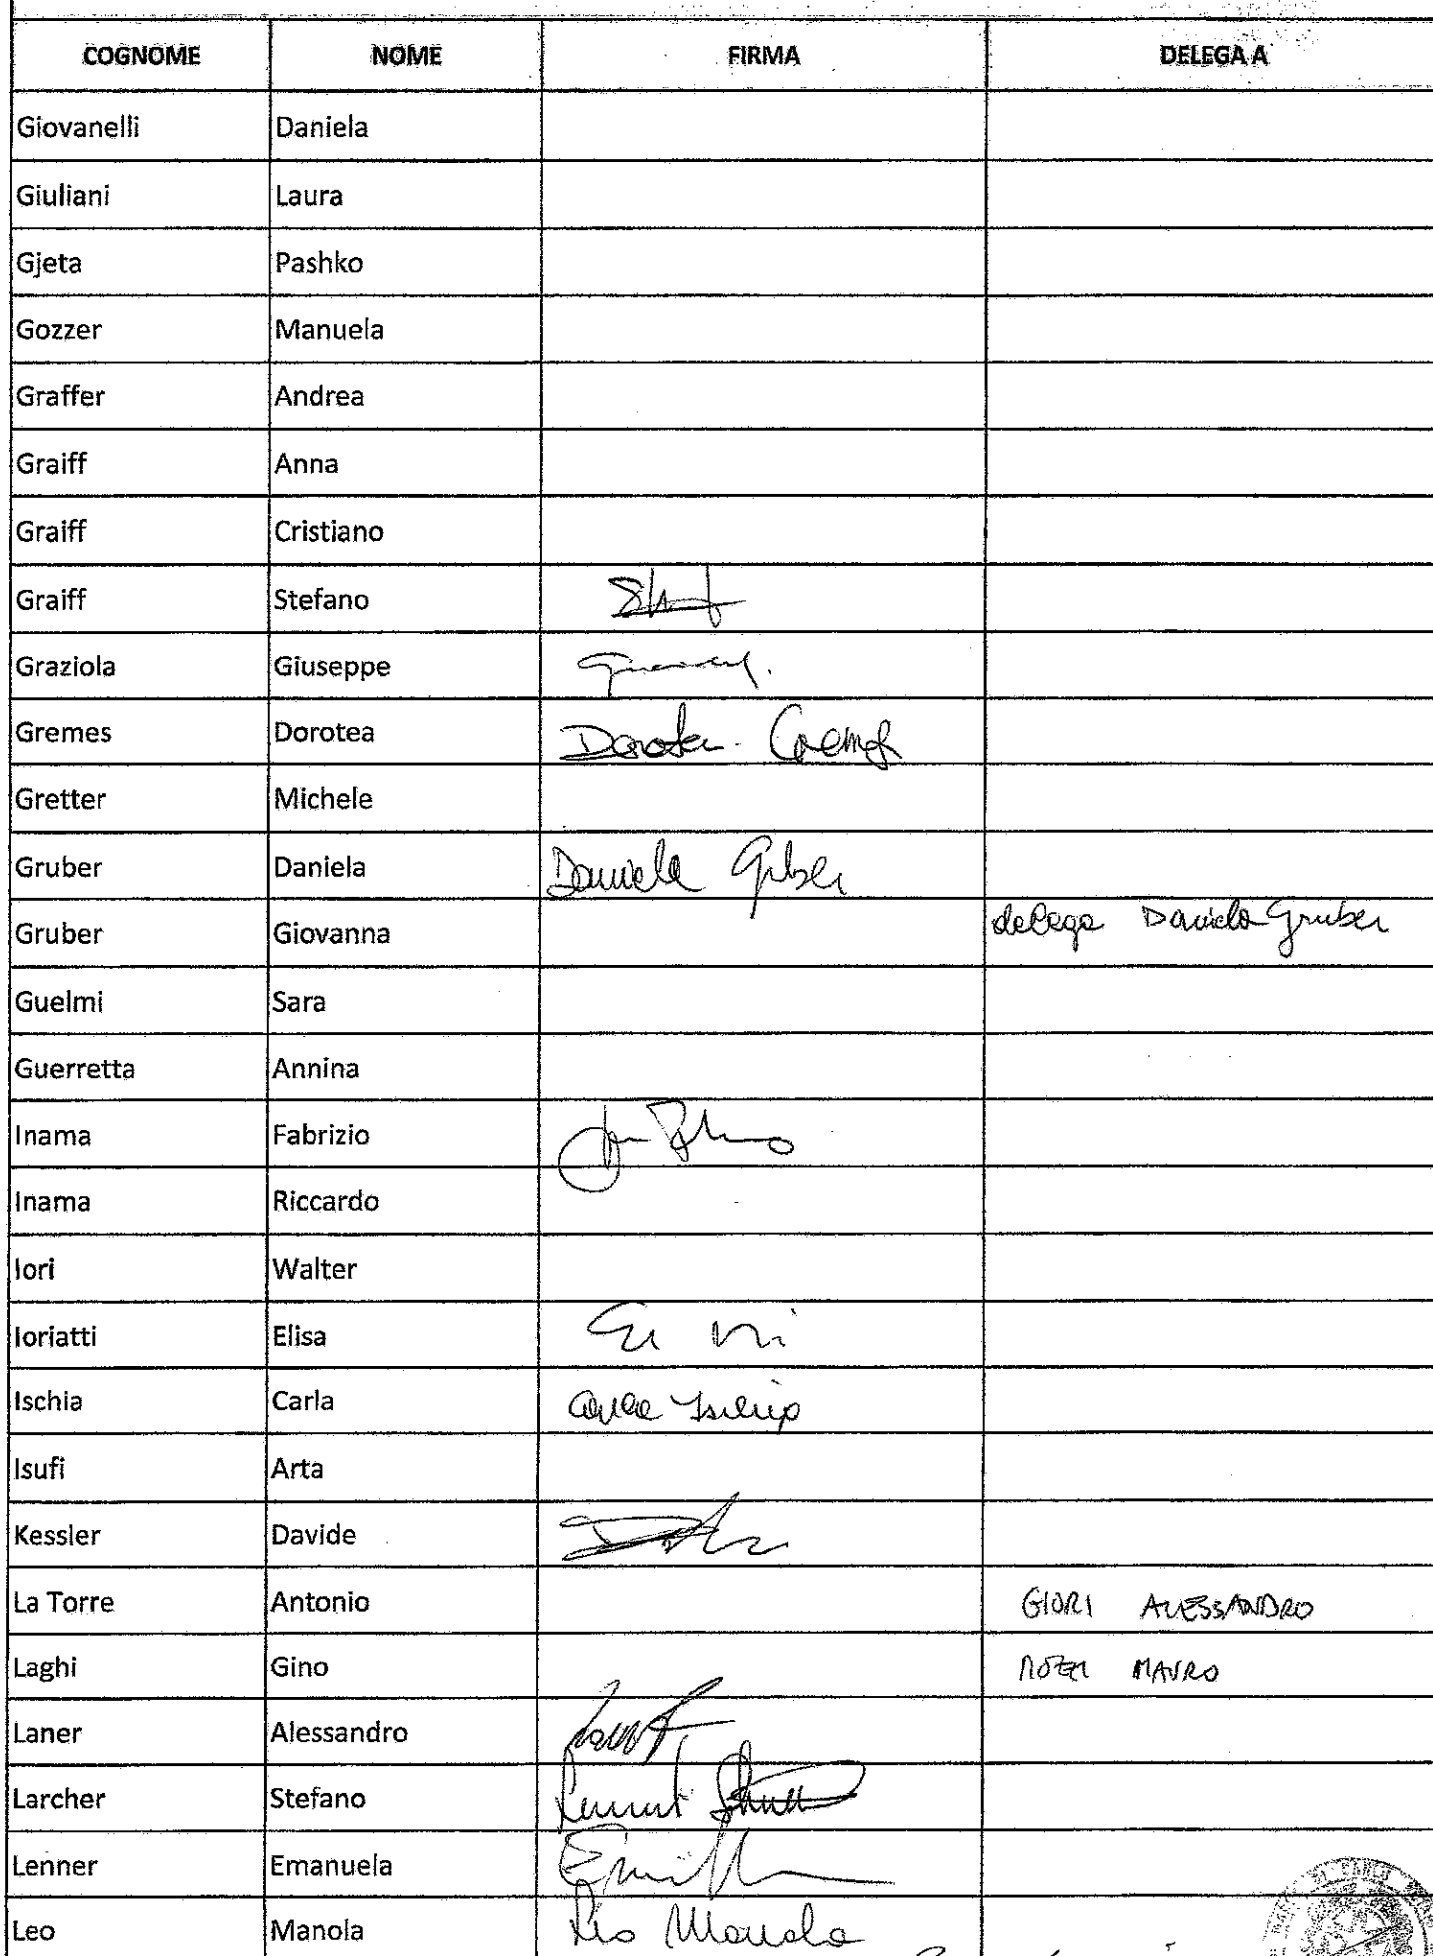 COGNOME NOME FIRMA DELEGA A
Giovanelli Daniela
Giuliani Laura
Gjeta Pashko
Gozzer Manuela
Graffer Andrea
Graiff Anna
Graiff Cristiano
Graiff Stefano
Graziola Giuseppe
Gremes Dorotea Dorotea Gremes
Gretter Michele
Gruber Daniela Daniela Gruber
Gruber Giovanna delega Daniela Gruber
Guelmi Sara
Guerretta Annina
Inama Fabrizio
Inama Riccardo
Iori Walter
Ioriatti Elisa
Ischia Carla Carla Ischia
Isufi Arta
Kessler Davide
La Torre Antonio GIORI ALESSANDRO
Laghi Gino MAURO
Laner Alessandro
Larcher Stefano
Lenner Emanuela
Leo Manola Leo Manola